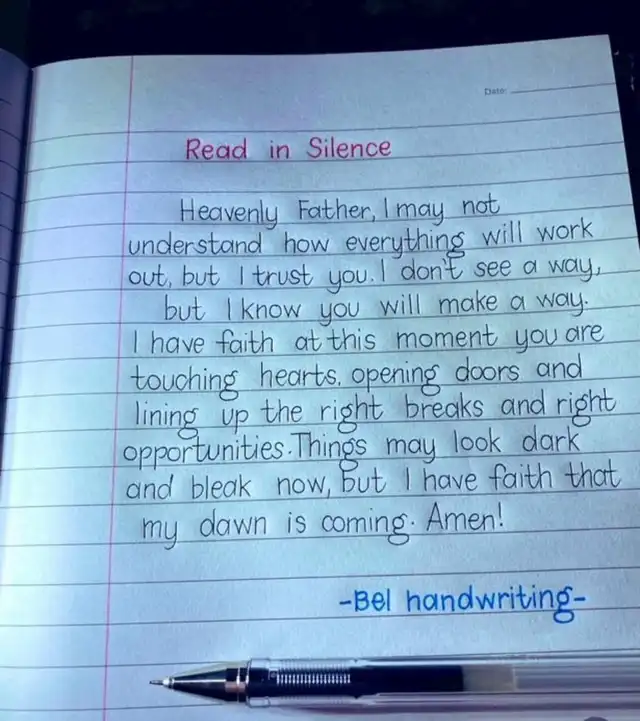 Date:
Read in Silence
Heavenly Father, I may not
understand how everything will work
out, but I trust you. I don't see a way,
but I know you will make a way.
I have faith at this moment you are
touching hearts, opening doors and
lining up the right breaks and right
opportunities. Things may look dark
and bleak now, but I have faith that
my dawn is coming. Amen!
-Bel handwriting-